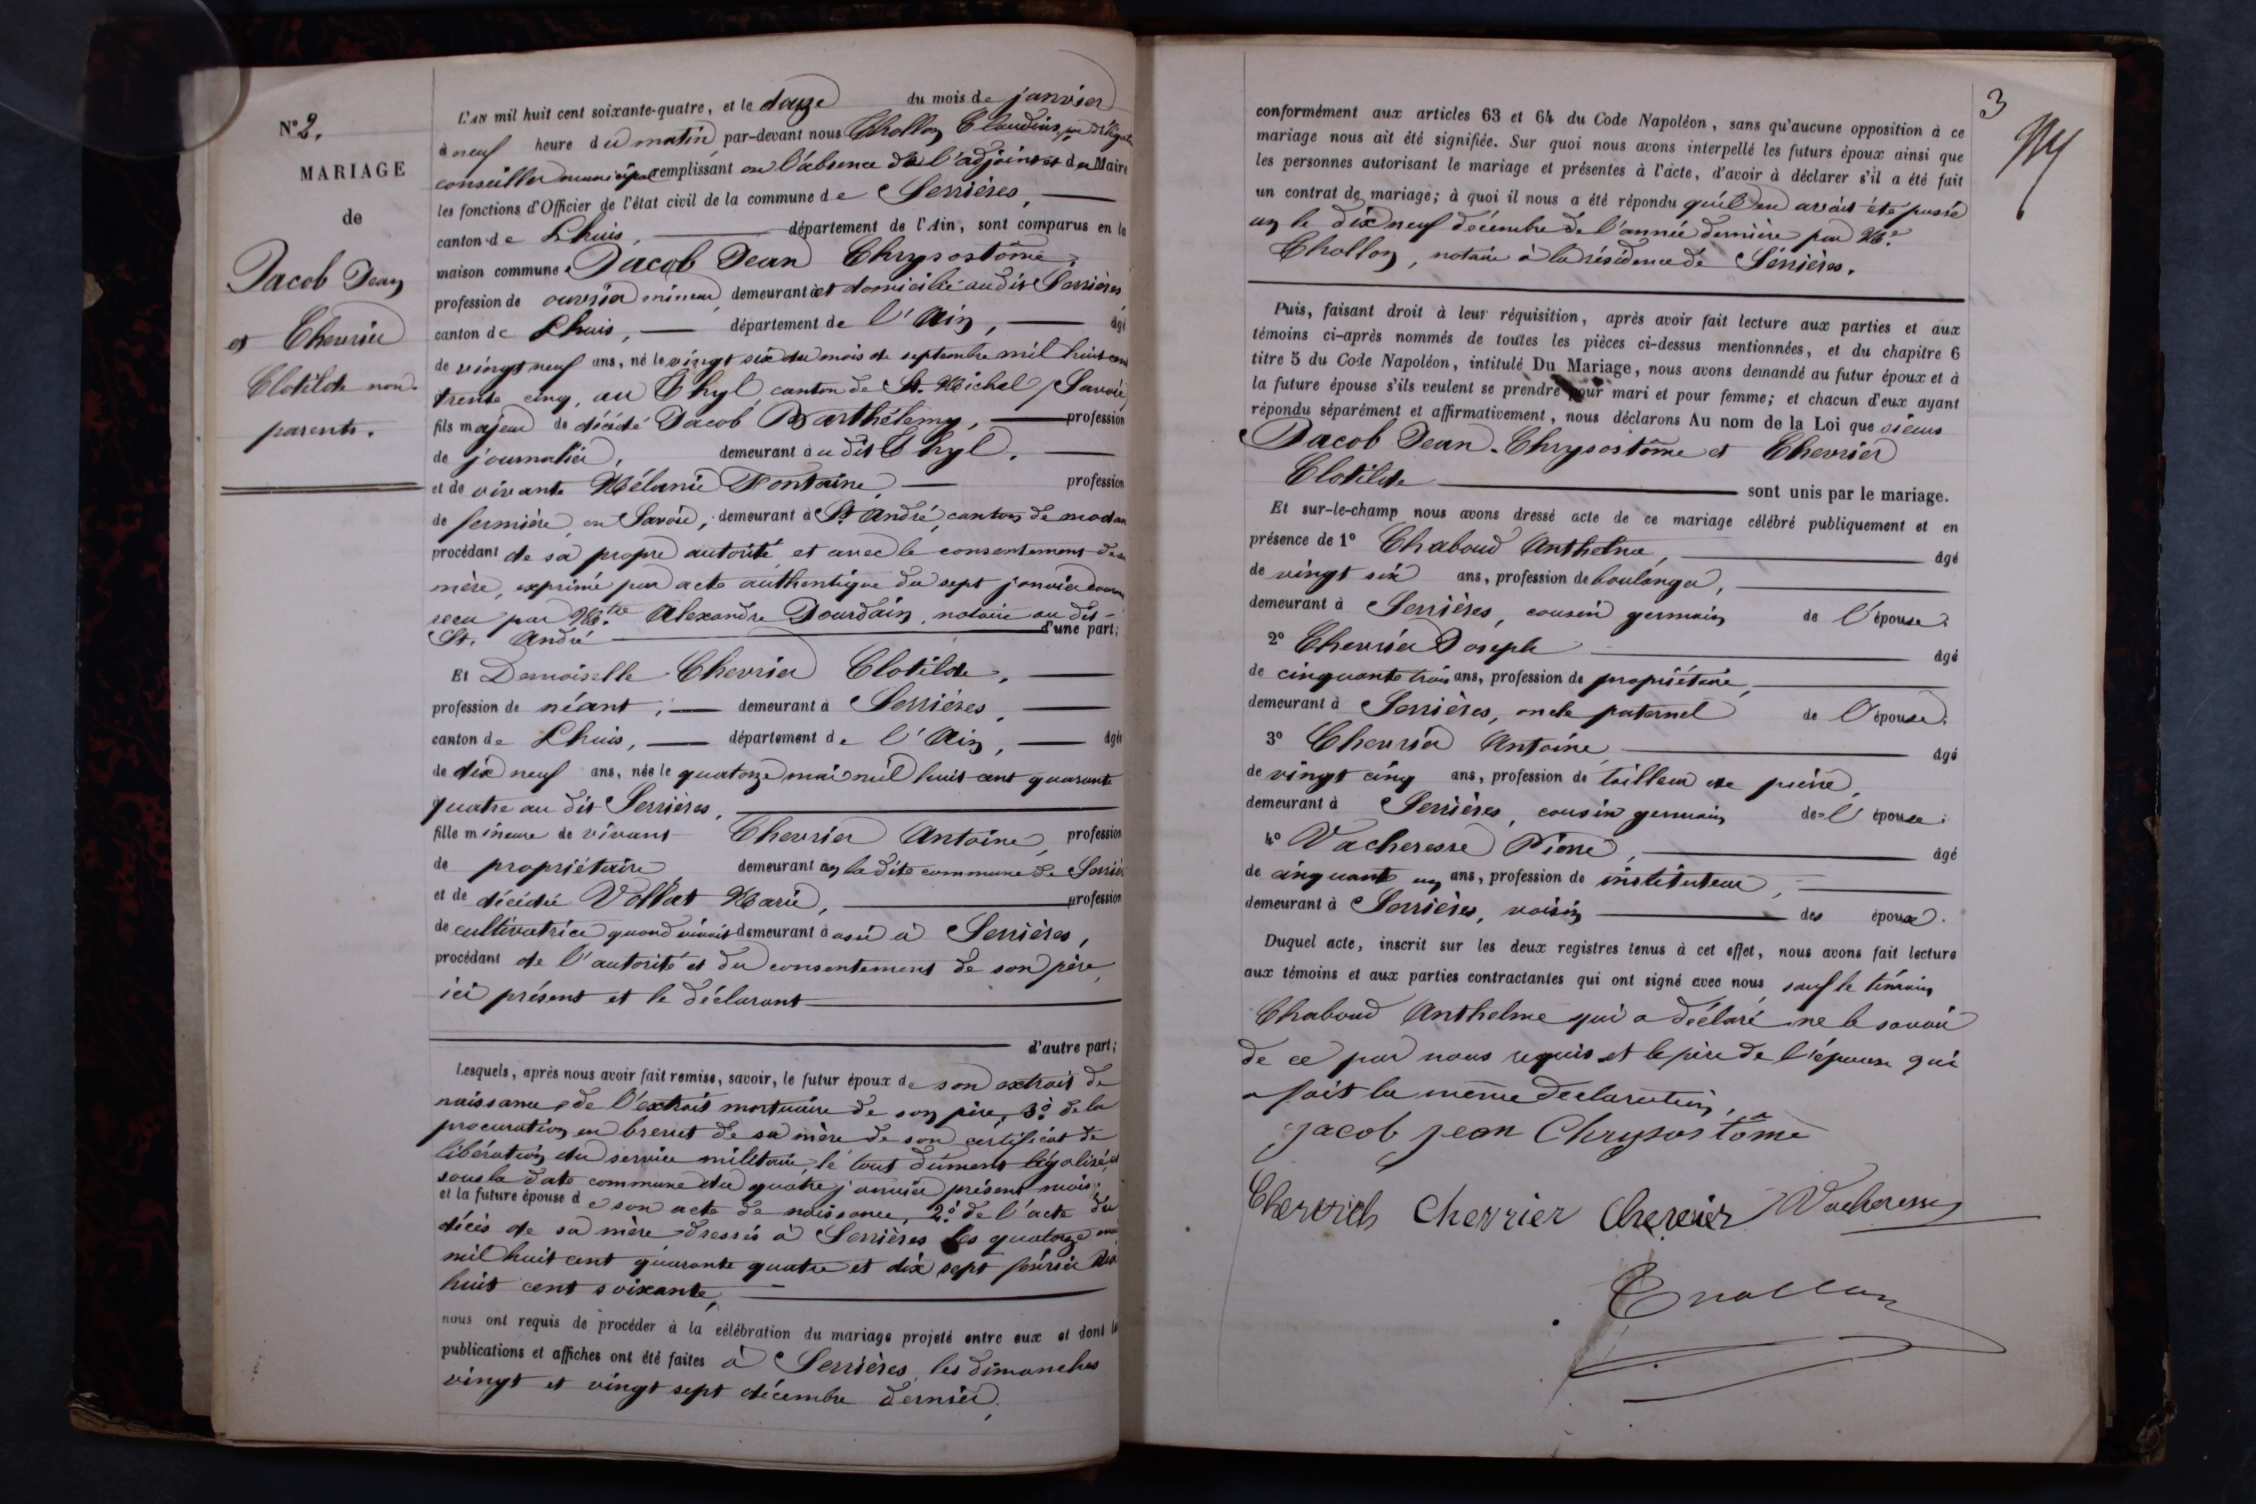 N° 2.
MARIAGE
de
Jacob Jean
et Chevrier
Clotilde non
parents.
L'AN mil huit cent soixante-quatre, et le douze du mois de janvier
à neuf heure du matin, par-devant nous Chollon Claudius, par délégation
conseiller municipal remplissant en l'absence de l'adjoint et du Maire
les fonctions d'Officier de l'état civil de la commune de Serrières,
canton de Lhuis, département de l'Ain, sont comparus en la
maison commune Jacob Jean Chrysostôme,
profession de ouvrier mineur, demeurant et domicilié au dit Serrières,
canton de Lhuis, département de l'Ain, âgé
de vingt neuf ans, né le vingt six du mois de septembre mil huit cent
trente cinq, au Thyl, canton de St. Michel, Savoie,
fils majeur de décédé Jacob Barthélemy, profession
de journalier, demeurant au dit Thyl,
et de vivante Mélanie Fontaine, profession
de fermière, en Savoie, demeurant à St. André, canton de modan
procédant de sa propre autorité et avec le consentement de sa
mère, exprimé par acte authentique du sept janvier courant
recu par Mtre Alexandre Jourdain, notaire au dit
St. André d'une part;
Et Demoiselle Chevrier Clotilde,
profession de néant, demeurant à Serrières,
canton de Lhuis, département de l'Ain, âgée
de dix neuf ans, née le quatorze mai mil huit cent quarante
quatre au dit Serrières,
fille mineure de vivant Chevrier Antoine, profession
de propriétaire, demeurant en la dite commune de Serrières
et de décédée Vollat Marie, profession
de cultivatrice quand vivait demeurant à aussi à Serrières,
procédant de l'autorité et du consentement de son père,
ici présent et le déclarant
d'autre part;
Lesquels, après nous avoir fait remise, savoir, le futur époux de son extrait de
naissance, de l'extrait mortuaire de son père, 3° de la
procuration en brevet de sa mère de son certificat de
libération du service militaire, le tout dûment légalisé, et
sous la date commune du quatre janvier présent mois;
et la future épouse de son acte de naissance, 2° de l'acte de
décès de sa mère dressés à Serrières les quatorze mai
mil huit cent quarante quatre et dix sept février mil
huit cent soixante,
nous ont requis de procéder à la célébration du mariage projeté entre eux et dont les
publications et affiches ont été faites à Serrières, les dimanches
vingt et vingt sept décembre dernier,
3
conformément aux articles 63 et 64 du Code Napoléon, sans qu'aucune opposition à ce
mariage nous ait été signifiée. Sur quoi nous avons interpellé les futurs époux ainsi que
les personnes autorisant le mariage et présentes à l'acte, d'avoir à déclarer s'il a été fait
un contrat de mariage; à quoi il nous a été répondu qu'il en avait été passé
un le dix neuf décembre de l'année dernière par Me.
Chollon, notaire à la résidence de Serrières.
Puis, faisant droit à leur réquisition, après avoir fait lecture aux parties et aux
témoins ci-après nommés de toutes les pièces ci-dessus mentionnées, et du chapitre 6
titre 5 du Code Napoléon, intitulé Du Mariage, nous avons demandé au futur époux et à
la future épouse s'ils veulent se prendre pour mari et pour femme; et chacun d'eux ayant
répondu séparément et affirmativement, nous déclarons Au nom de la Loi que sieurs
Jacob Jean Chrysostôme et Chevrier
Clotilde sont unis par le mariage.
Et sur-le-champ nous avons dressé acte de ce mariage célébré publiquement et en
présence de 1° Chaboud Anthelme, âgé
de vingt six ans, profession de boulanger,
demeurant à Serrières, cousin germain de l'épouse.
2° Chevrier Joseph âgé
de cinquante trois ans, profession de propriétaire,
demeurant à Serrières, oncle paternel de l'épouse.
3° Chevrier Antoine, âgé
de vingt cinq ans, profession de tailleur de pierre,
demeurant à Serrières, cousin germain de l'épouse.
4° Vacheresse Pierre, âgé
de cinquante un ans, profession de instituteur,
demeurant à Serrières, voisin des époux.
Duquel acte, inscrit sur les deux registres tenus à cet effet, nous avons fait lecture
aux témoins et aux parties contractantes qui ont signé avec nous sauf le témoin
Chaboud Anthelme qui a déclaré ne le savoir
de ce par nous requis et le père de l'épouse qui
a fait la même déclaration.
jacob jean Chrysostôme
Chervrier Chevrier Chevrier Vacheresse
Chollon